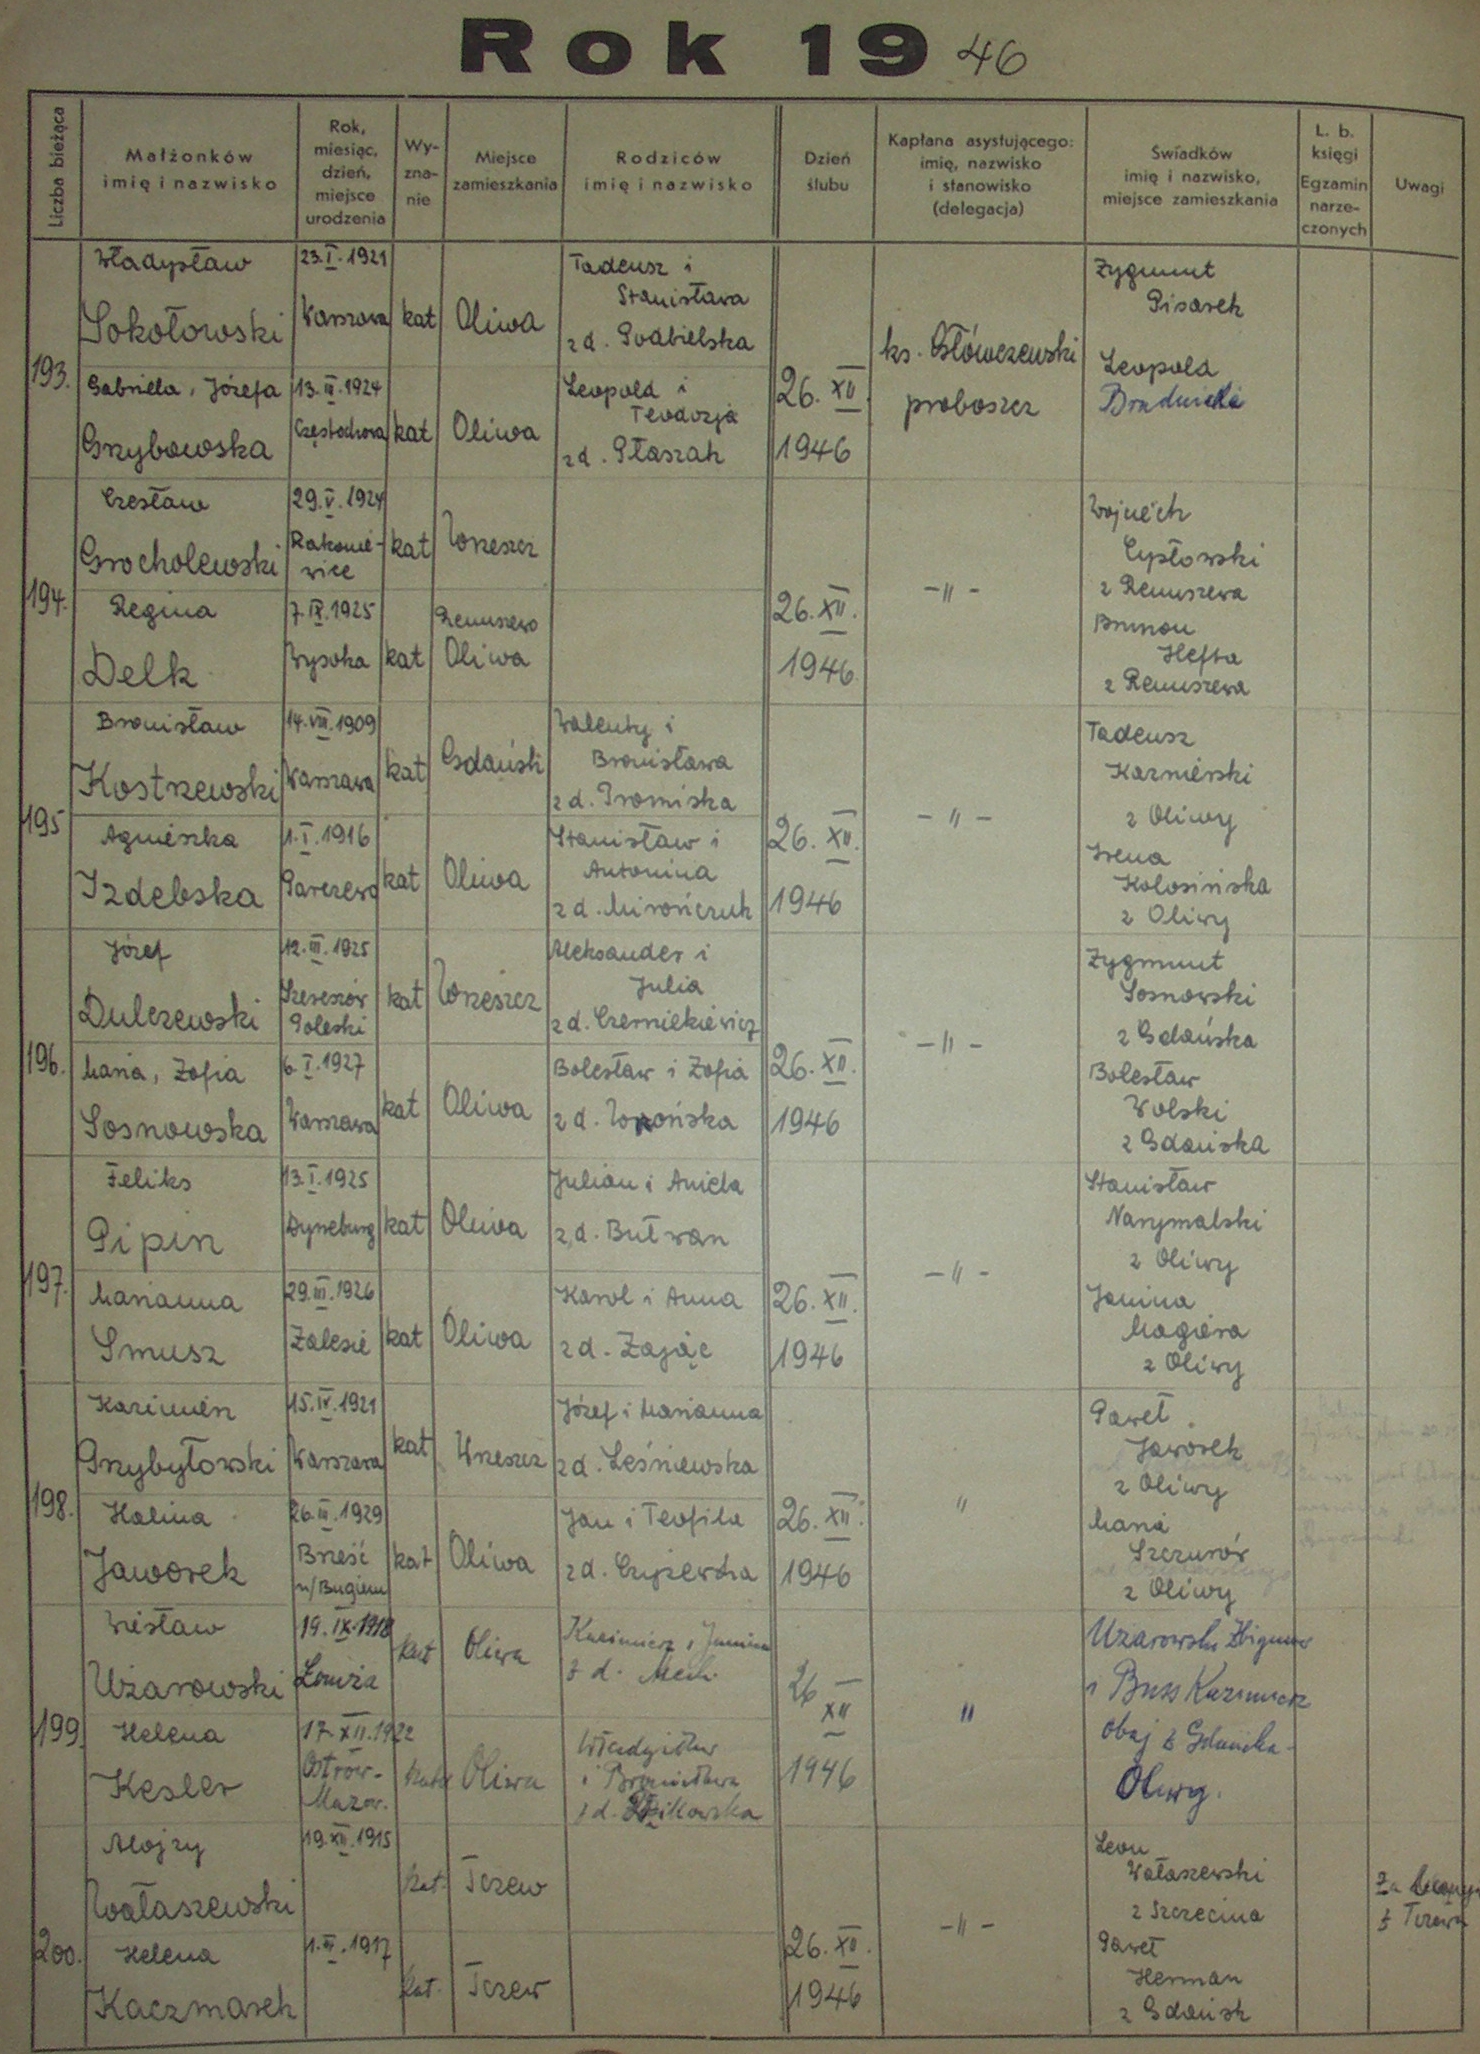 Rok 1946
Liczba bieżąca
Małżonków
imię i nazwisko
Rok,
miesiąc,
dzień,
miejsce
urodzenia
Wy-
zna-
nie
Miejsce
zamieszkania
Rodziców
imię i nazwisko
Dzień
ślubu
Kapłana asystującego:
imię, nazwisko
i stanowisko
(delegacja)
Świadków
imię i nazwisko,
miejsce zamieszkania
L. b.
księgi
Egzamin
narze-
czonych
Uwagi
193.
Władysław
Sokołowski
23.I.1921
Warszawa
kat
Oliwa
Tadeusz i
Stanisława
z d. Podbielska
Gabriela, Józefa
Grzybowska
13.III.1924
Częstochowa
kat
Oliwa
Leopold i
Teodozja
z d. Ptaszak
26. XII.
1946
ks. Główczewski
proboszcz
Zygmunt
Pisarek
Leopold
194.
Czesław
Grocholewski
29.V.1924
Rakonie-
wice
kat
Wrzeszcz
Regina
Delk
7.IX.1925
Wysoka
kat
Remuszewo
Oliwa
26. XII.
1946
-"-
Wojciech
Cypłowski
z Remuszewa
Brunon
Hefta
z Remuszewa
195
Bronisław
Kostrzewski
14.VIII.1909
Warszawa
kat
Gdańsk
Walenty i
Bronisława
z d. Promiska
Agnieszka
Izdebska
1.I.1916
Parczewo
kat
Oliwa
Stanisław i
Antonina
z d. Mirończuk
26. XII.
1946
-"-
Tadeusz
Kazmierski
z Oliwy
Irena
Kolosińska
z Oliwy
196.
Józef
Dulczewski
12.III.1925
Szereszów
Poleski
kat
Wrzeszcz
Aleksander i
Julia
z d. Czerniekiewicz
Maria, Zofia
Sosnowska
6.I.1927
Warszawa
kat
Oliwa
Bolesław i Zofia
z d. Wrońska
26. XII.
1946
-"-
Zygmunt
Sosnowski
z Gdańska
Bolesław
Wolski
z Gdańska
197.
Feliks
Pipin
13.I.1925
Dyneburg
kat
Oliwa
Julian i Aniela
z d. Butwan
Marianna
Smusz
29.III.1926
Zalesie
kat
Oliwa
Karol i Anna
z d. Zając
26. XII.
1946
-"-
Stanisław
Narymalski
z Oliwy
Janina
Magiera
z Oliwy
198.
Kazimierz
Grzybyłowski
15.IV.1921
Warszawa
kat
Wrzeszcz
Józef i Marianna
z d. Leśniewska
Halina
Jaworek
26.III.1929
Brześć
n/Bugiem
kat
Oliwa
Jan i Teofila
z d. Czyżewska
26. XII.
1946
"
Paweł
Jaworek
z Oliwy
Maria
Szczurów
z Oliwy
199.
Wiesław
Użarowski
19.IX.1918
Łomża
kat
Oliwa
Kazimierz i Janina
z d.
Helena
Kesler
17.XII.1922
Ostrów-
Mazow.
kat
Oliwa
Władysław
i Bronisława
z d.
26
XII
1946
"
Użarowski Zbigniew
i Buss Kazimierz
obaj z Gdańska-
Oliwy.
200.
Alojzy
Wałaszewski
19.XII.1915
kat.
Tczew
Helena
Kaczmarek
1.III.1917
kat.
Tczew
26. XII.
1946
-"-
Leon
Wałaszewski
z Szczecina
Paweł
Herman
z Gdańsk
Za
z Tczewa